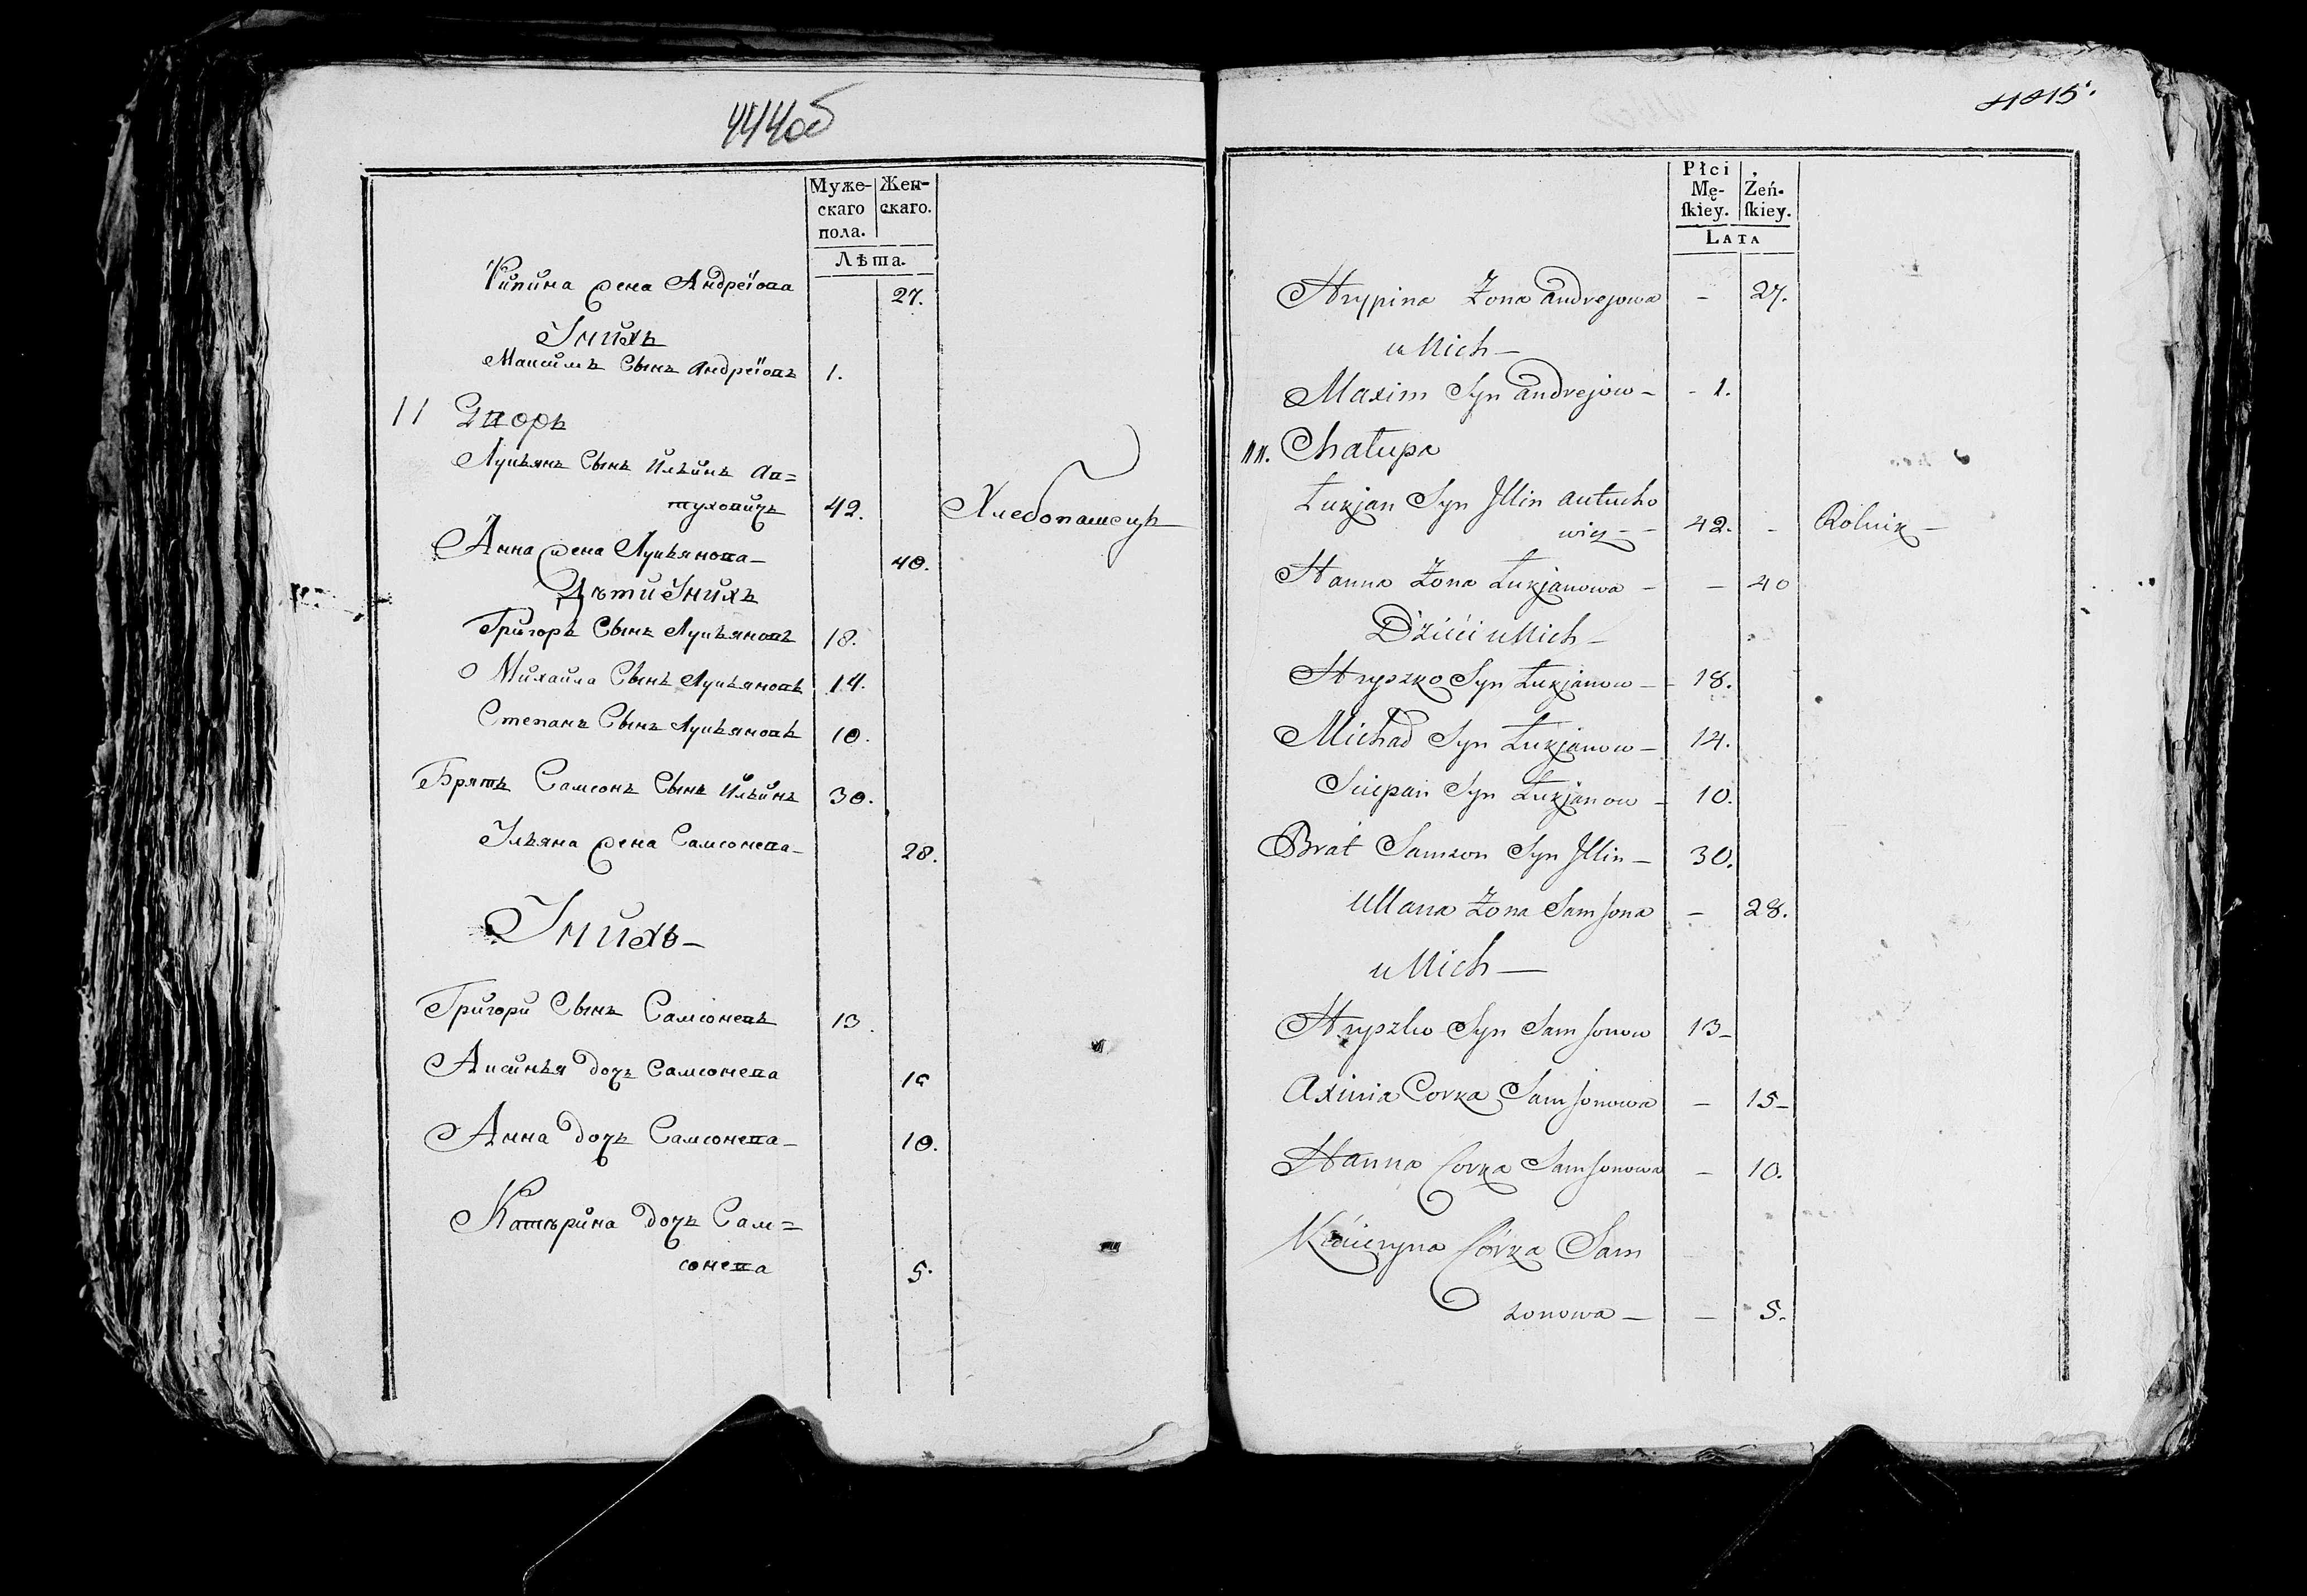 444об
Муже-
скаго
пола.
Жен-
скаго.
Лѣта.
жена Андреiова 27.
У нихъ
Максимъ Сынъ Андреiовъ 1.
11 Дворъ
Лукьянъ Сынъ Ильинъ Ав=
туховичъ 42. Хлебопашецъ
Анна жена Лукьянова — 40.
Дѣти У нихъ
Григоръ Сынъ Лукьяновъ 18.
Михаила Сынъ Лукьяновъ 14.
Степанъ Сынъ Лукьяновъ 10.
Братъ Самсонъ Сынъ Ильинъ 30.
Ульяна жена Самсонева — 28.
У нихъ —
Григори Сынъ Самсоневъ 13.
Аксинья дочь Самсонева
Анна дочь Самсонева — 10.
Катърина дочь Сам=
сонева 5.
Płci
Mę-
ſkiey.
Żeń-
ſkiey.
LATA
Hrypina Zona Andrejowa — 27.
u Nich —
Maxim Syn Andrejow — 1.
11. Chałupa
Łukjan Syn Illin Autucho
wicz — 42. - Rolnik —
Hanna Zona Łukjanowa — 40
Dzieci u Nich —
Hryszko Syn Łukjanow — 18.
Michał Syn Łukjanow — 14.
Sciepan Syn Łukjanow — 10.
Brat Samzon Syn Illin — 30.
Ullana Zona Samsona — 28.
u Nich —
Hryszko Syn Samsonow 13 —
Axinia Corka Samsonowa — 15 —
Hanna Corka Samsonowa — 10.
Kacieryna Córka Sam
zonowa — 5.